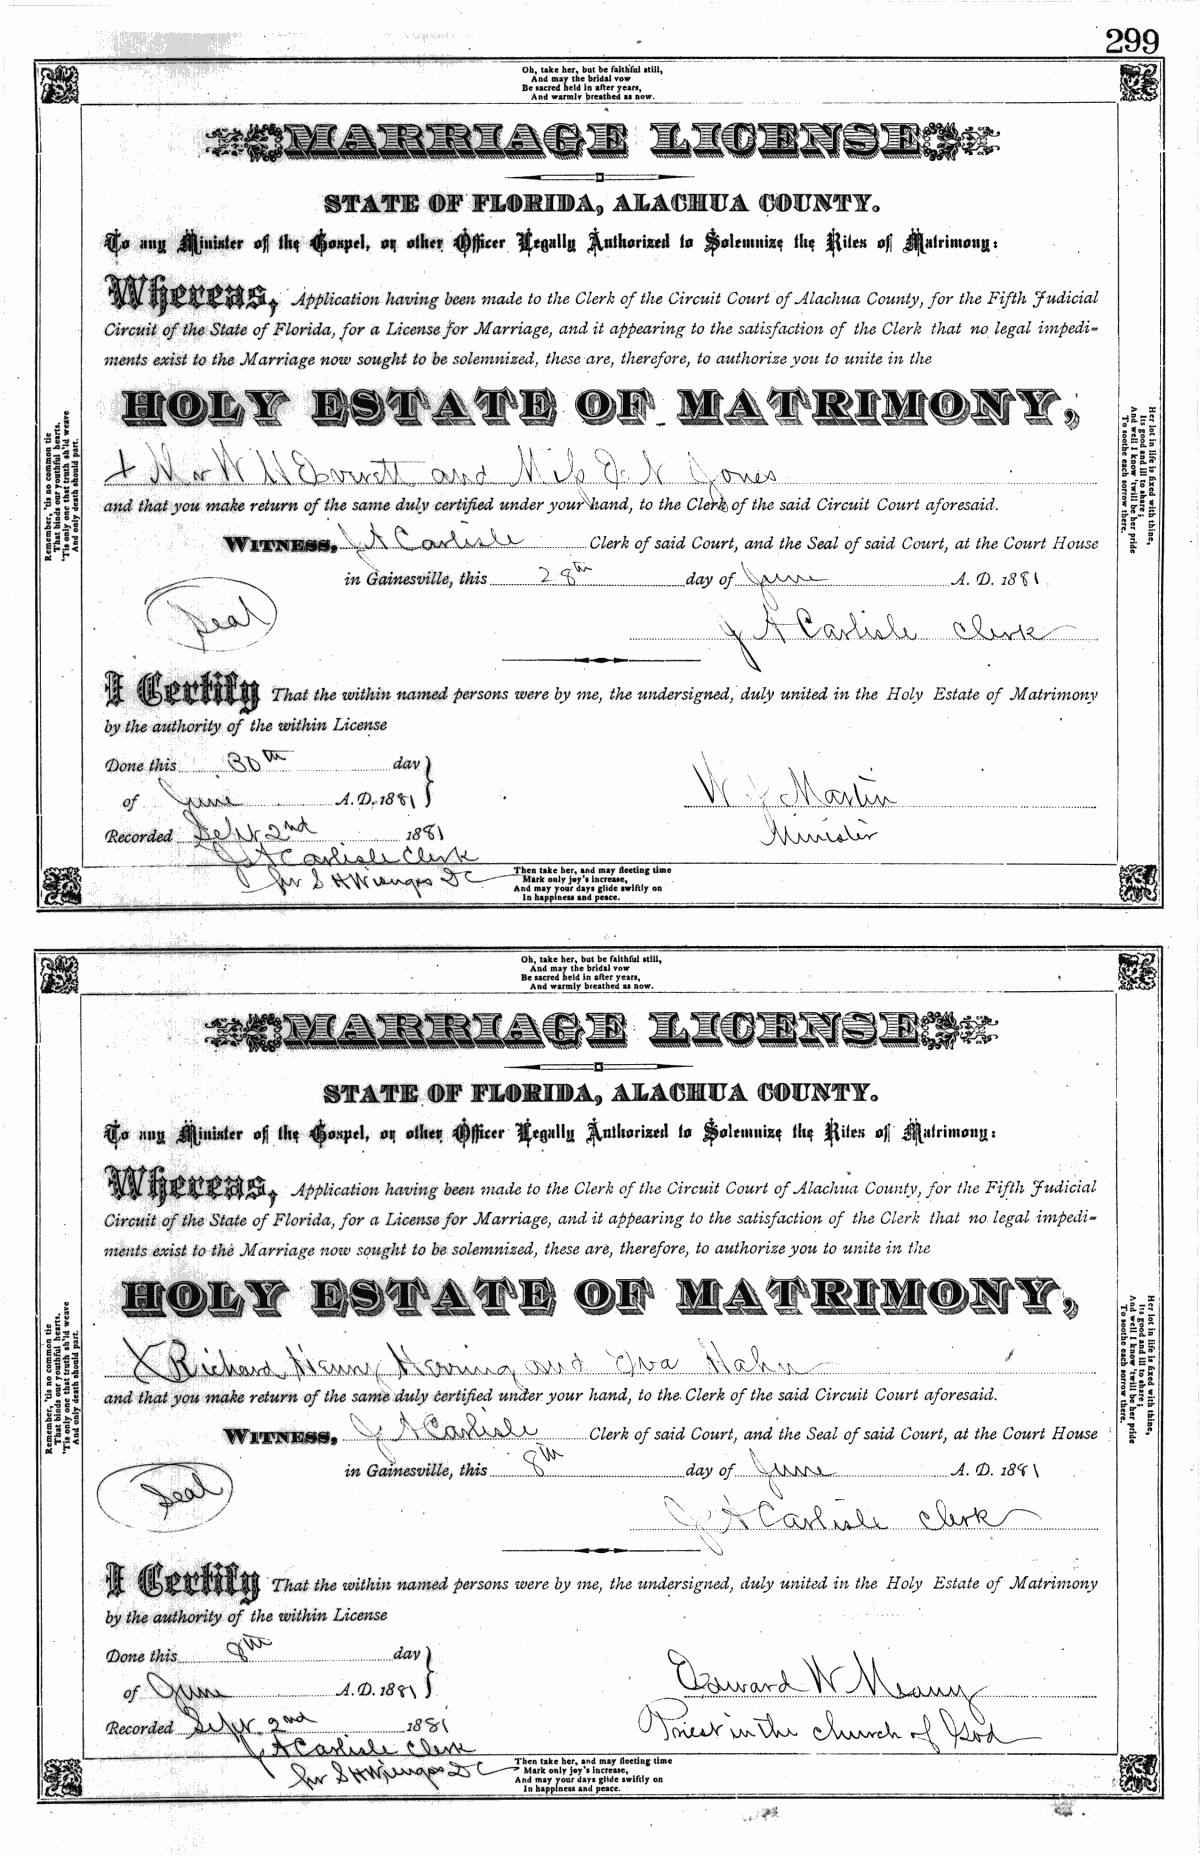 299
Oh, take her, but be faithful still,
And may the bridal vow
Be sacred held in after years,
And warmly breathed as now.
MARRIAGE LICENSE
STATE OF FLORIDA, ALACHUA COUNTY.
To any Minister of the Gospel, or other Officer Legally Authorized to Solemnize the Rites of Matrimony:
Whereas, Application having been made to the Clerk of the Circuit Court of Alachua County, for the Fifth Judicial
Circuit of the State of Florida, for a License for Marriage, and it appearing to the satisfaction of the Clerk that no legal impedi-
ments exist to the Marriage now sought to be solemnized, these are, therefore, to authorize you to unite in the
HOLY ESTATE OF MATRIMONY,
X Mr W H Everett and Miss J. N Jones
and that you make return of the same duly certified under your hand, to the Clerk of the said Circuit Court aforesaid.
WITNESS, J A Carlisle Clerk of said Court, and the Seal of said Court, at the Court House
in Gainesville, this 28th day of June A. D. 1881
Seal
J A Carlisle Clerk
I Certify That the within named persons were by me, the undersigned, duly united in the Holy Estate of Matrimony
by the authority of the within License
Done this 30th day
of June A. D. 1881
W J Martin
Recorded Sept 2nd 1881
Minister
J A Carlisle Clerk
pr S H Wienges DC
Remember, 'tis no common tie
That binds our youthful hearts.
'Tis only one that truth sh'ld weave
And only death should part.
Her lot in life is fixed with thine,
Its good and ill to share;
And well I know 'twill be her pride
To soothe each sorrow there.
Then take her, and may fleeting time
Mark only joy's increase,
And may your days glide swiftly on
In happiness and peace.
Oh, take her, but be faithful still,
And may the bridal vow
Be sacred held in after years,
And warmly breathed as now.
MARRIAGE LICENSE
STATE OF FLORIDA, ALACHUA COUNTY.
To any Minister of the Gospel, or other Officer Legally Authorized to Solemnize the Rites of Matrimony:
Whereas, Application having been made to the Clerk of the Circuit Court of Alachua County, for the Fifth Judicial
Circuit of the State of Florida, for a License for Marriage, and it appearing to the satisfaction of the Clerk that no legal impedi-
ments exist to the Marriage now sought to be solemnized, these are, therefore, to authorize you to unite in the
HOLY ESTATE OF MATRIMONY,
X Richard Henry Herring and Eva Hahn
and that you make return of the same duly certified under your hand, to the Clerk of the said Circuit Court aforesaid.
WITNESS, J A Carlisle Clerk of said Court, and the Seal of said Court, at the Court House
in Gainesville, this 8th day of June A. D. 1881
Seal
J A Carlisle Clerk
I Certify That the within named persons were by me, the undersigned, duly united in the Holy Estate of Matrimony
by the authority of the within License
Done this 8th day
of June A. D. 1881
Edward W Meany
Recorded Sept. 2nd 1881
Priest in the church of God
J A Carlisle Clerk
pr S H Wienges DC
Remember, 'tis no common tie
That binds our youthful hearts.
'Tis only one that truth sh'ld weave
And only death should part.
Her lot in life is fixed with thine,
Its good and ill to share;
And well I know 'twill be her pride
To soothe each sorrow there.
Then take her, and may fleeting time
Mark only joy's increase,
And may your days glide swiftly on
In happiness and peace.